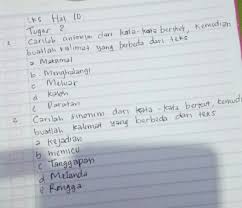 LKS Hal 10
Tugas 2
1. Carilah antonim dari kata-kata berikut, kemudian
buatlah kalimat yang berbeda dari teks
a. Maksimal
b. Menghalangi
c. Meluas
d. Kokoh
e. Daratan
2. Carilah sinonim dari kata-kata berikut, kemud
buatlah kalimat yang berbeda dari teks
a Kejadian
b memicu
c Tanggapan
d Melanda
e Rongga